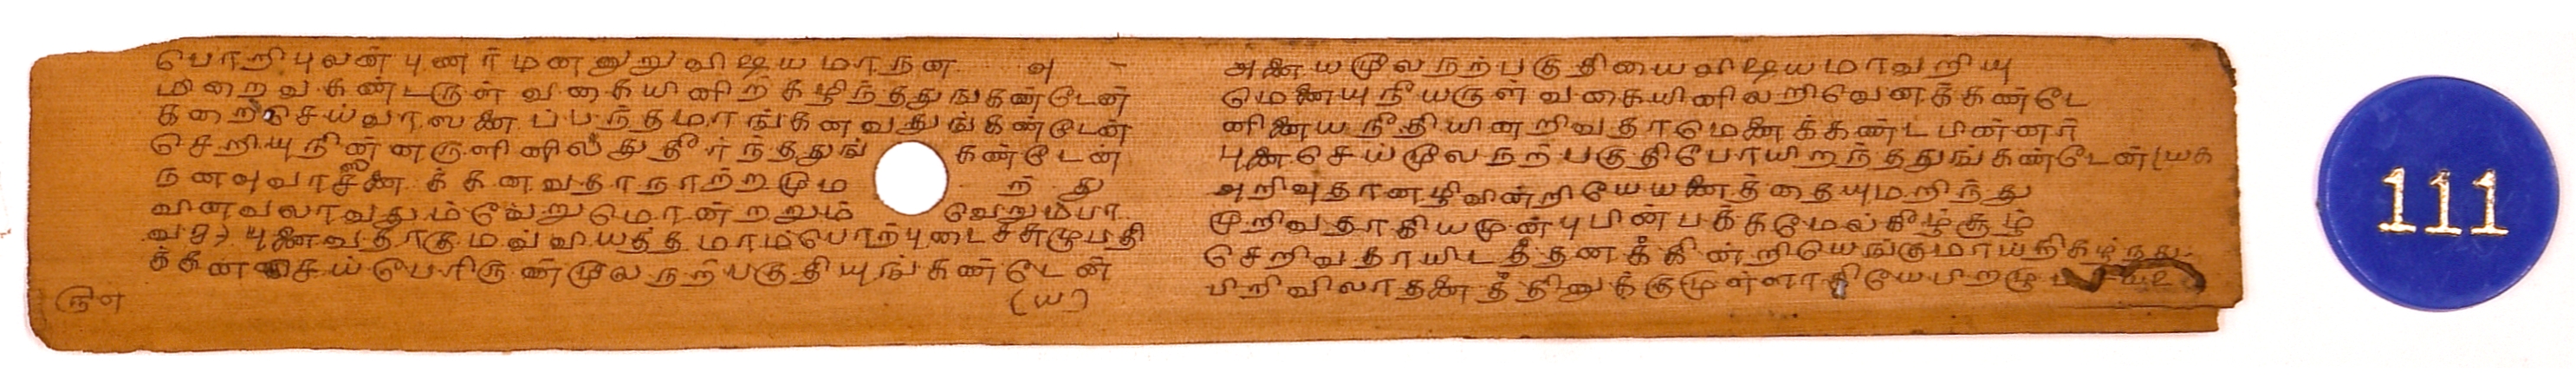 பொறிபுலன் புணர்மனனுறு விஷயமானன வு
மிறைவகண்டருள் வகையினிற்கழிந்ததுங்கண்டேன்
கறைசெய்வாஸனைப்பந்தமாங்கனவதுங்கண்டேன்
செறியுநின்னருளினில துதீர்ந்ததுங் கண்டேன்
நனவுவாச்சனைக்கனவதாநாற்றமும ற் து
வினவலாவதும்வேறுமொன்றறும் வேறும்பா
புனைவதாகுமவ்வியத்தமாம்பொற்புடைச்சுழுபதி
க்கன செய்பெரிருண்மூலநற்பகுதியுங்கண்டேன்
(ய)
அனையமூலநற்பகுதியைவிஷயமாவறியு
மெனையுநீயருள்வகையினிலறிவெனக்கண்டே
னினையநீதியினறிவதாமெனைக்கண்டபின்னர்
புனைசெய்மூலநற்பகுதிபோயிறந்ததுங்கண்டேன் (யக
அறிவுதானழிவின்றியேயனைத்தையுமறிந்து
முறிவதாகியமுன்புபின்பக்கமேல்கீழ்சூழ்
செறிவதாயிடத்தனக்கின்றியெங்குமாய்நிகழ்ந்து
பிறிவிலாதனைத்தினுக்குமுள்ளாகியேபிற
111